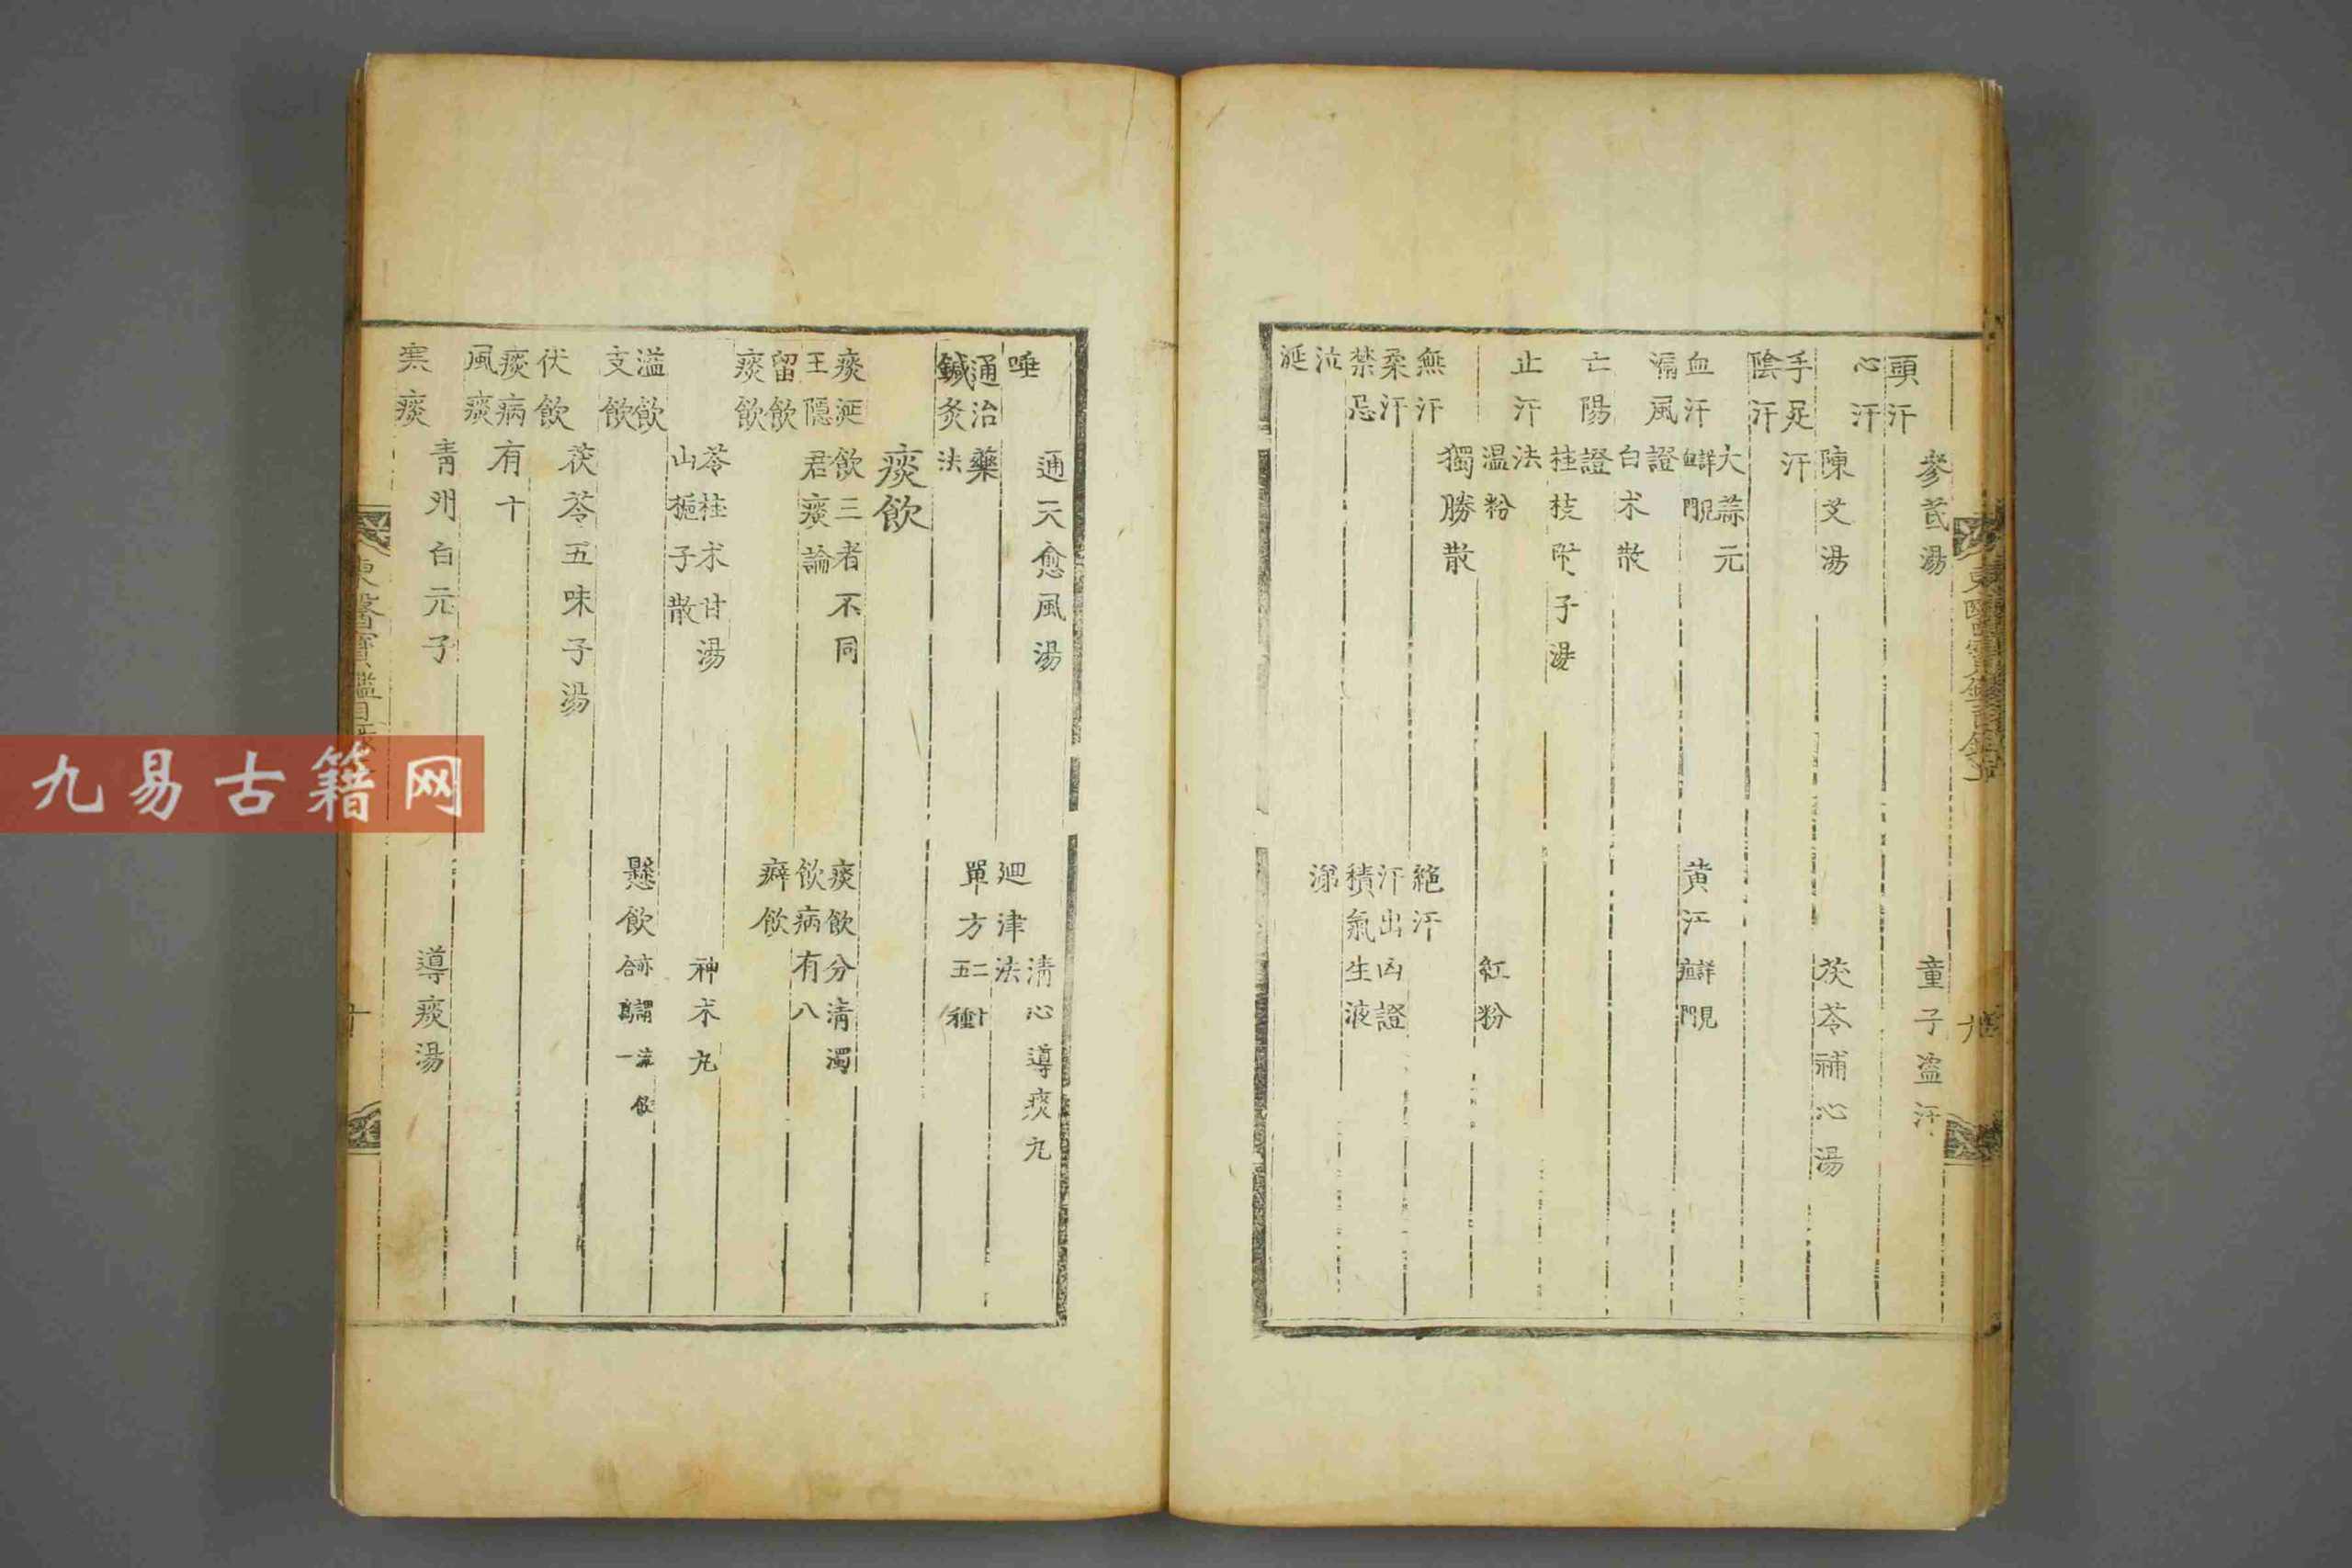 東醫寶鑑目錄上 九
參芪湯 童子盜汗
頭汗
心汗
陳艾湯 茯苓補心湯
手足汗
陰汗
大蒜元
血汗 詳見血門 黄汗 詳見疸門
漏風證
白朮散
亡陽證
桂枝附子湯
止汗法
温粉 紅粉
獨勝散
無汗 絶汗
柔汗 汗出凶證
禁忌 積氣生液
泣 涕
涎
通天愈風湯 清心導痰丸
唾 廻津法
通治藥 單方 二十五種
鍼灸法
痰飲
痰涎飲三者不同 痰飲分清濁
王隱君痰論 飲病有八
留飲 癖飲
痰飲
苓桂朮甘湯 神朮丸
山梔子散
溢飲 懸飲
支飲
茯苓五味子湯
伏飲
痰病有十
風痰
青州白元子 導痰湯
寒痰
東醫寶鑑目錄 十
九易古籍网